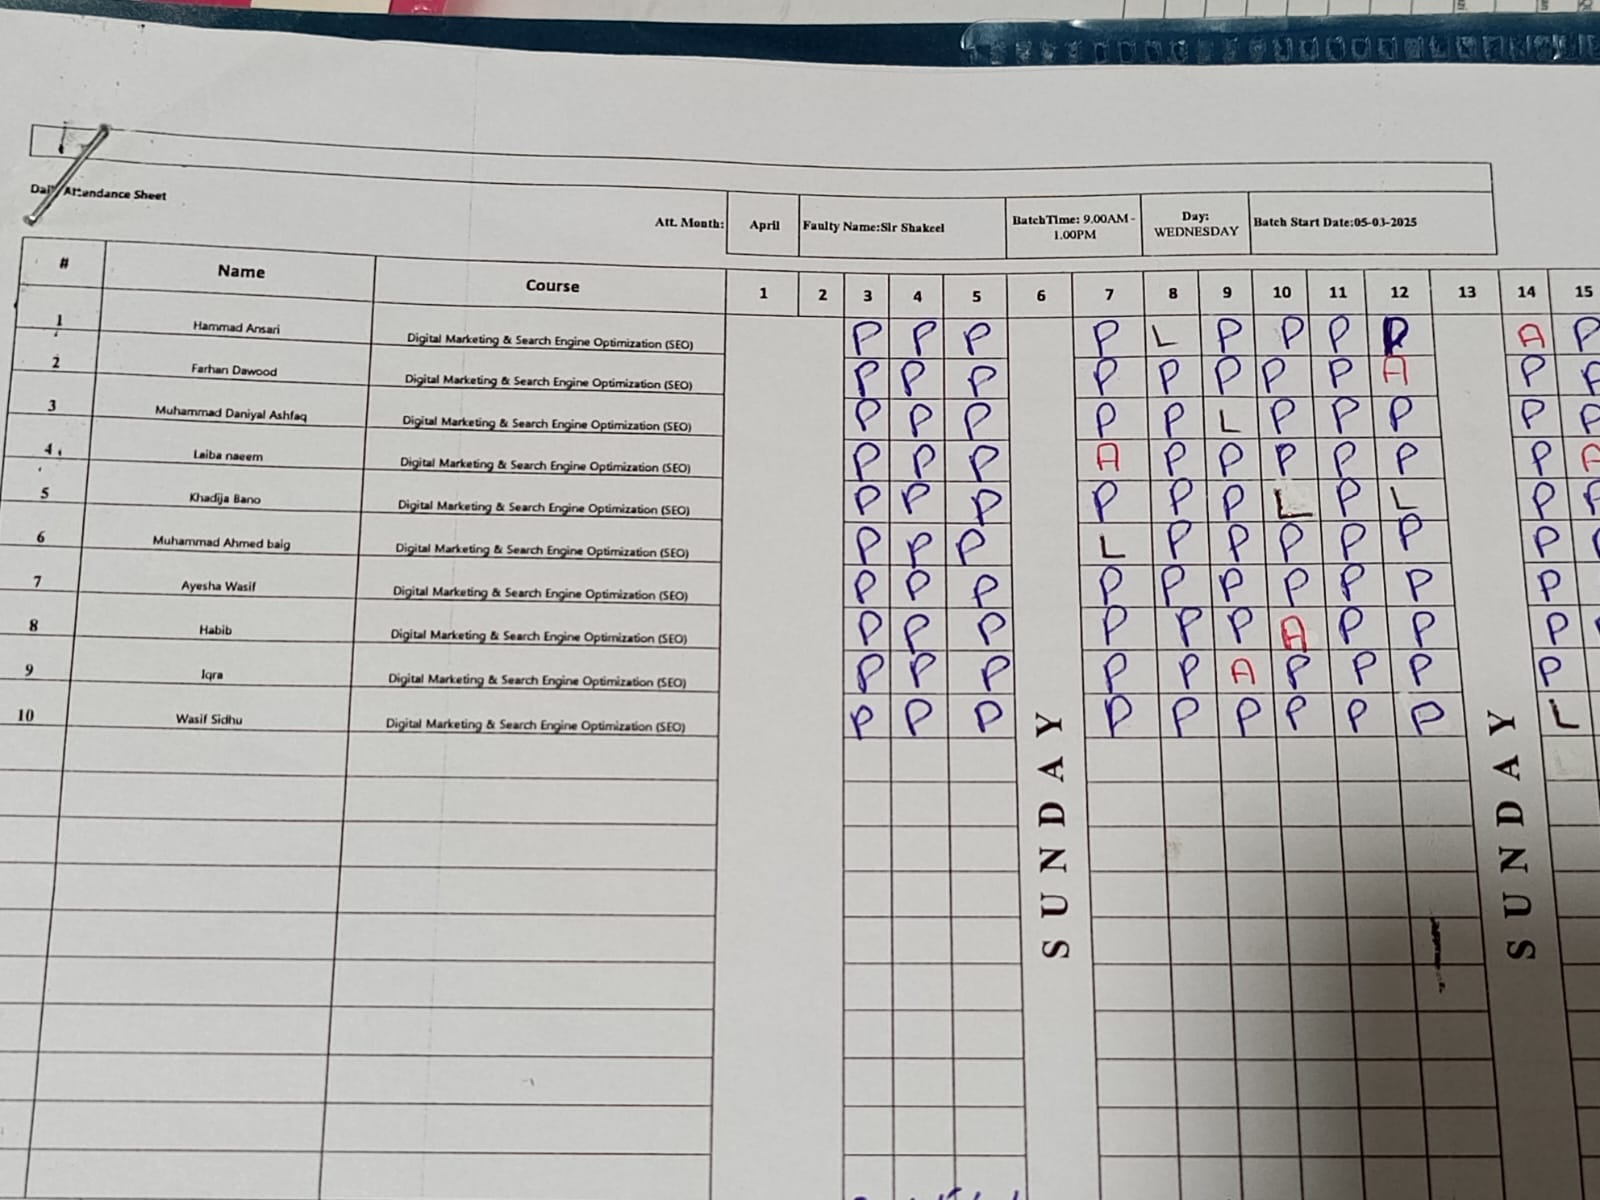 Daily Attendance Sheet
Att. Month: April Faulty Name:Sir Shakeel BatchTime: 9.00AM - 1.00PM Day: WEDNESDAY Batch Start Date:05-03-2025
# Name Course 1 2 3 4 5 6 7 8 9 10 11 12 13 14 15
1 Hammad Ansari Digital Marketing & Search Engine Optimization (SEO) P P P P L P P P P A P
2 Farhan Dawood Digital Marketing & Search Engine Optimization (SEO) P P P P P P P P A P P
3 Muhammad Daniyal Ashfaq Digital Marketing & Search Engine Optimization (SEO) P P P P P L P P P P P
4 Laiba naeem Digital Marketing & Search Engine Optimization (SEO) P P P A P P P P P P A
5 Khadija Bano Digital Marketing & Search Engine Optimization (SEO) P P P P P P L P L P P
6 Muhammad Ahmed baig Digital Marketing & Search Engine Optimization (SEO) P P P L P P P P P P
7 Ayesha Wasif Digital Marketing & Search Engine Optimization (SEO) P P P P P P P P P P
8 Habib Digital Marketing & Search Engine Optimization (SEO) P P P P P P A P P P
9 Iqra Digital Marketing & Search Engine Optimization (SEO) P P P P P A P P P P
10 Wasif Sidhu Digital Marketing & Search Engine Optimization (SEO) P P P P P P P P P L
SUNDAY
SUNDAY